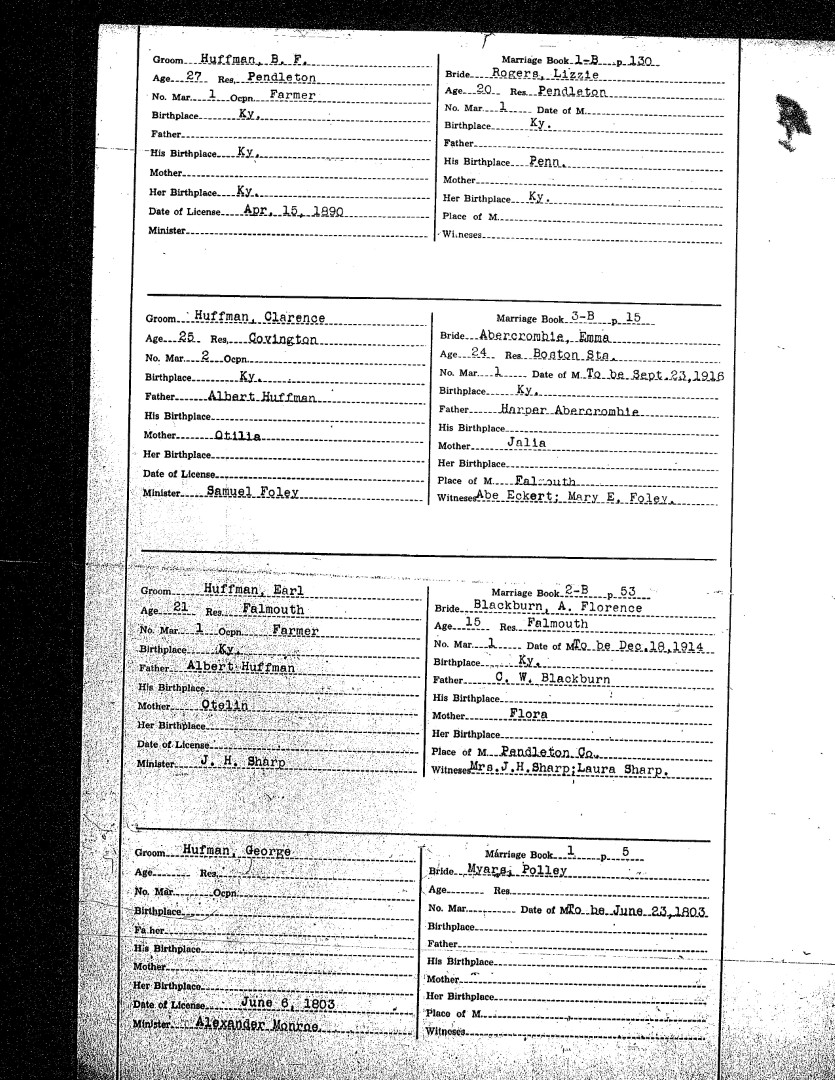 Groom Huffman, B. F.
Age 27 Res. Pendleton
No. Mar. 1 Ocpn. Farmer
Birthplace Ky.
Father
His Birthplace Ky.
Mother
Her Birthplace Ky.
Date of License Apr. 15, 1890
Minister
Marriage Book 1-B p. 130
Bride Rogers, Lizzie
Age 20 Res. Pendleton
No. Mar. 1 Date of M.
Birthplace Ky.
Father
His Birthplace Penn.
Mother
Her Birthplace Ky.
Place of M.
Witnesses
Groom Huffman, Clarence
Age 25 Res. Covington
No. Mar. 2 Ocpn.
Birthplace Ky.
Father Albert Huffman
His Birthplace
Mother Otilia
Her Birthplace
Date of License
Minister Samuel Foley
Marriage Book 3-B p. 15
Bride Abercrombie, Emma
Age 24 Res. Boston Sta.
No. Mar. 1 Date of M. To be Sept.23,1916
Birthplace Ky.
Father Harper Abercrombie
His Birthplace
Mother Jalia
Her Birthplace
Place of M. Falmouth
Witnesses Abe Eckert; Mary E. Foley.
Groom Huffman, Earl
Age 21 Res. Falmouth
No. Mar. 1 Ocpn. Farmer
Birthplace Ky.
Father Albert Huffman
His Birthplace
Mother Otelin
Her Birthplace
Date of License
Minister J. H. Sharp
Marriage Book 2-B p. 53
Bride Blackburn, A. Florence
Age 15 Res. Falmouth
No. Mar. 1 Date of M. To be Dec.18,1914
Birthplace Ky.
Father C. W. Blackburn
His Birthplace
Mother Flora
Her Birthplace
Place of M. Pendleton Co.
Witnesses Mrs.J.H.Sharp;Laura Sharp.
Groom Hufman, George
Age Res.
No. Mar. Ocpn.
Birthplace
Father
His Birthplace
Mother
Her Birthplace
Date of License June 6, 1803
Minister Alexander Monroe
Marriage Book 1 p. 5
Bride Myars, Polley
Age Res.
No. Mar. Date of M. To be June 23,1803
Birthplace
Father
His Birthplace
Mother
Her Birthplace
Place of M.
Witnesses